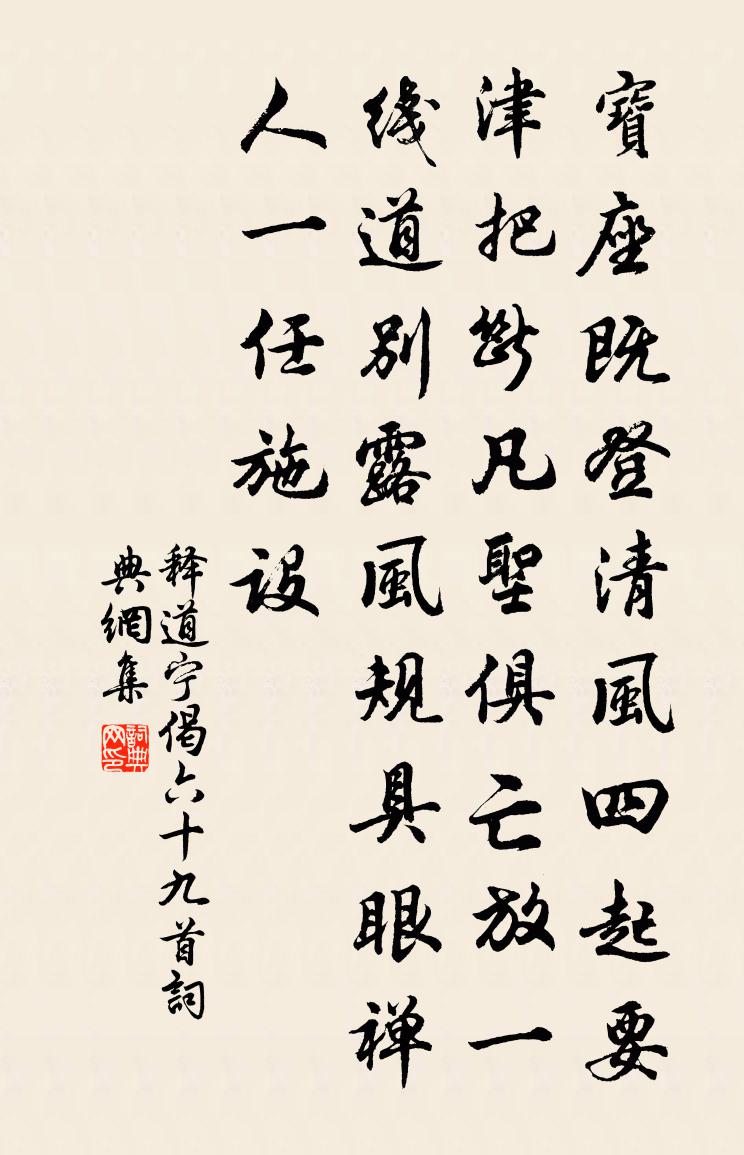 寶座既登清風四起要
津把斷凡聖俱亡放一
綫道別露風規具眼禅
人一任施设
释道宁偈六十九首詞
典網集
詞典
网印